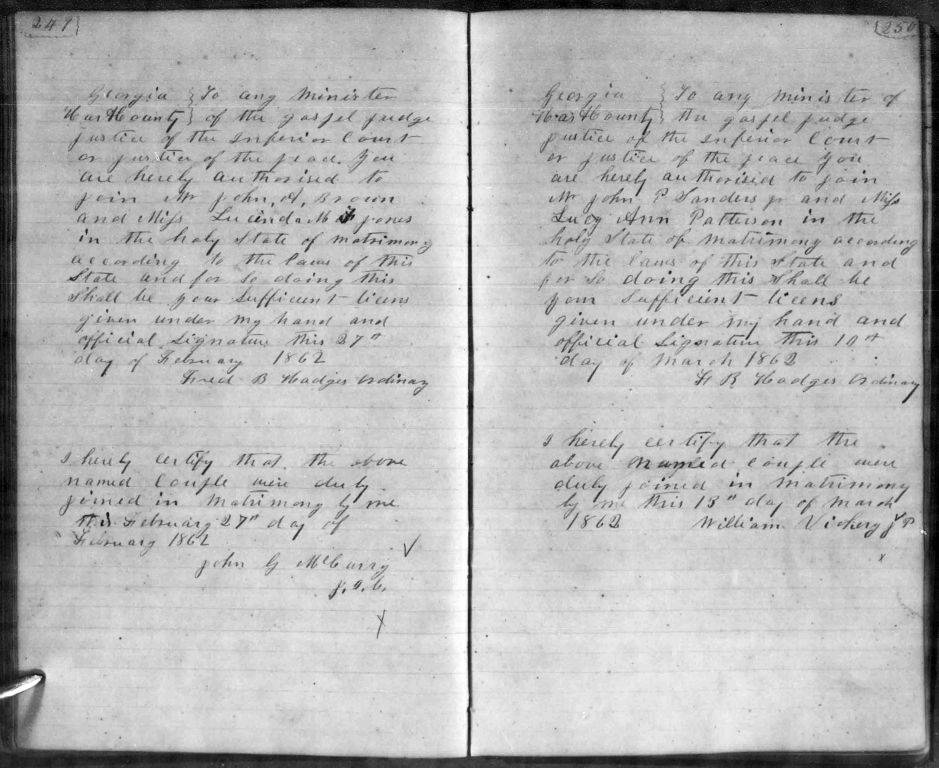 249
Georgia } To any Minister
Hart County } of the gospel judge
justice of the Inferior Court
or justice of the peace. You
are hereby authorised to
join Mr John. A. Brown
and Miss Lucinda M Jones
in the holy State of matrimony
according to the laws of this
State and for so doing this
Shall be your Sufficient licens
given under my hand and
official Signature this 27th
day of February 1862
Fred B Hodges Ordinary
I hereby certify that the above
named Couple were duly
joined in Matrimony by me
this February 27th day of
February 1862
John G McCurry
J.I.C.
250
Georgia } To any minister of
Hart County } the gospel judge
justice of the Inferior Court
or justice of the peace You
are hereby authorised to join
Mr John P Sanders jr and Miss
Lucy Ann Patterson in the
holy State of Matrimony according
to the laws of this State and
for So doing this Shall be
your Sufficient licens
given under my hand and
official Signature this 10th
day of March 1862
F B Hodges Ordinary
I hereby certify that the
above named Couple were
duly joined in matrimony
by me this 13th day of March
1862 William Vickery J P